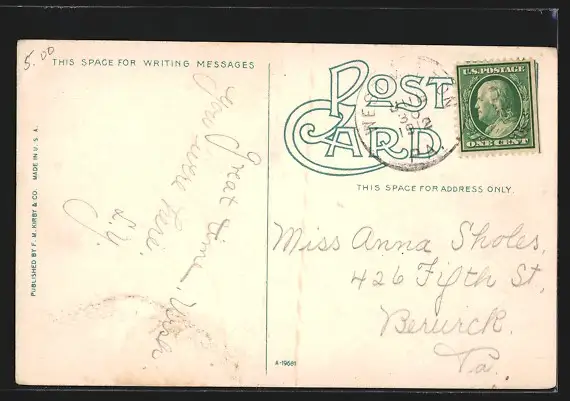 5.00
THIS SPACE FOR WRITING MESSAGES
POST
CARD
U.S. POSTAGE
ONE CENT
THIS SPACE FOR ADDRESS ONLY.
PUBLISHED BY F. M. KIRBY & CO. MADE IN U.S.A.
Great time, Wish
you were here.
L.Y.
Miss Anna Sholes,
426 Fifth St,
Berwick.
Pa.
A-19681